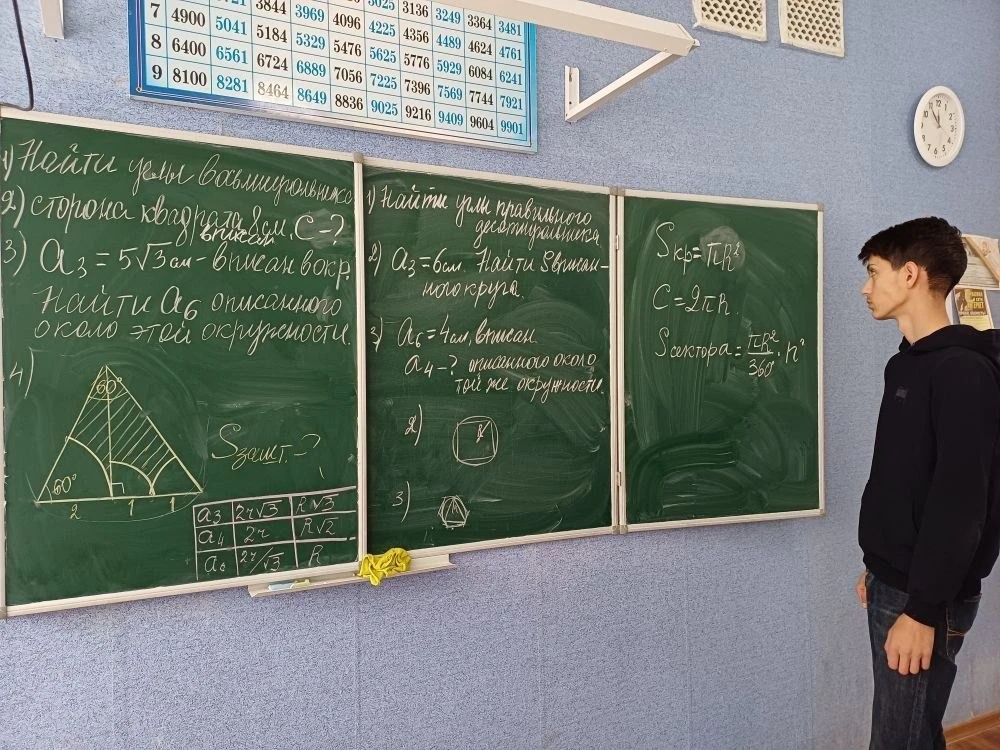 3025 3136 3249 3364 3481
7 4900 5041 5184 5329 5476 5625 5776 5929 6084 6241
8 6400 6561 6724 6889 7056 7225 7396 7569 7744 7921
9 8100 8281 8464 8649 8836 9025 9216 9409 9604 9901
1) Найти углы восьмиугольника
2) сторона квадрата 8 см. C - ?
вписан
3) a3 = 5√3 см - вписан в окр.
Найти a6 описанного
около этой окружности.
4)
60°
60°
2 1 1
Sзашт. - ?
a3 2r√3 R√3
a4 2r R√2
a6 2r/√3 R
1) Найти углы правильного
десятиугольника.
2) a3 = 6 см. Найти S вписан-
ного круга.
3) a6 = 4 см, вписан
a4 - ? описанного около
той же окружности.
2)
3)
Sкр = πR²
C = 2πR.
Sсектора = πR²/360 · n°